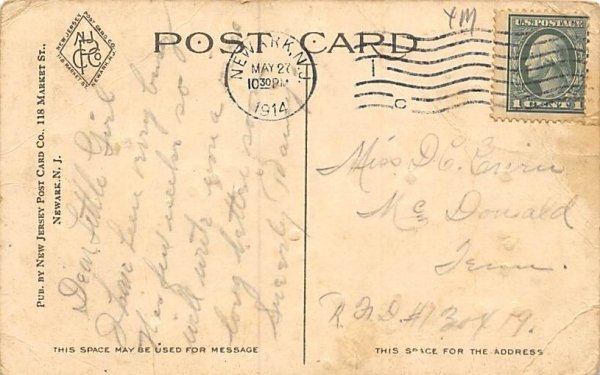 POST CARD
NEW JERSEY POST CARD CO.
118 MARKET ST. NEWARK, N.J.
PUB. BY NEW JERSEY POST CARD CO., 118 MARKET ST.,
NEWARK, N. J.
NEWARK, N.J.
MAY 27
10 30 PM
1914
1
C
YM
U.S. POSTAGE
1 CENT 1
Dear Little Girl
I have been very busy
this few weeks so
will write you a
long letter soon
Sincerely
Miss D. C.
Mc Donald
Tenn.
R.F.D. #1 Box 19.
THIS SPACE MAY BE USED FOR MESSAGE
THIS SPACE FOR THE ADDRESS